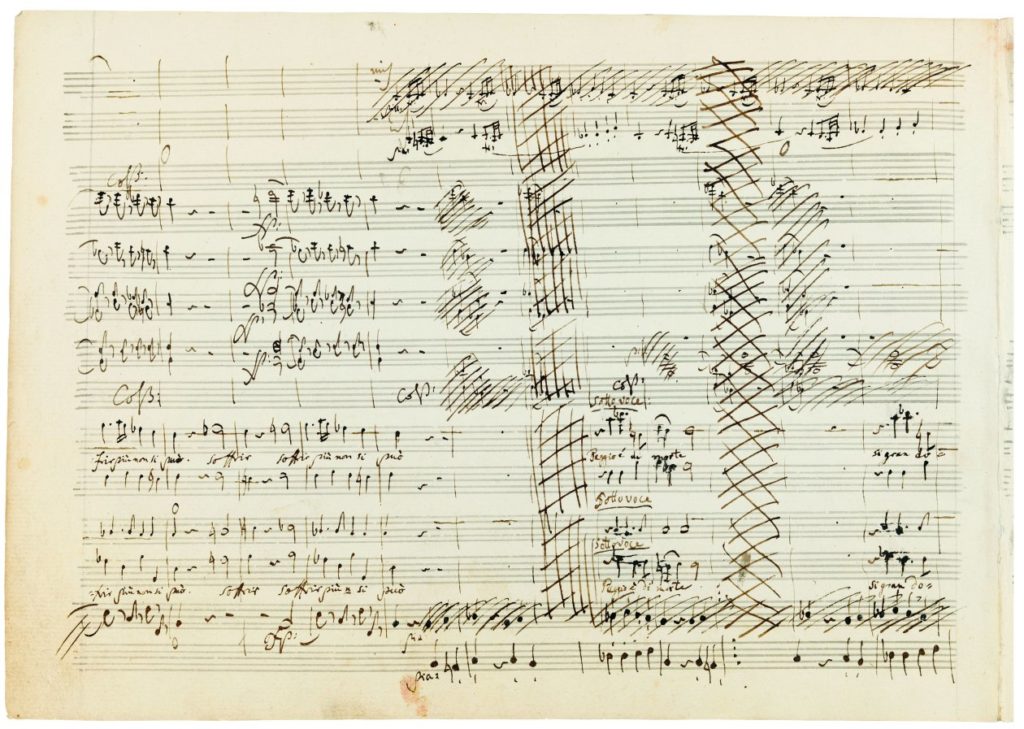 Col B:
Col B: Col B: Col B:
Sotto voce:
frir più non si può. soffrir soffrir più non si può Peggio è di morte si gran do=
Sotto voce
Sotto voce
=frir più non si può. soffrir soffrir più si può Peggio è di morte si gran do=
fp:
pia: